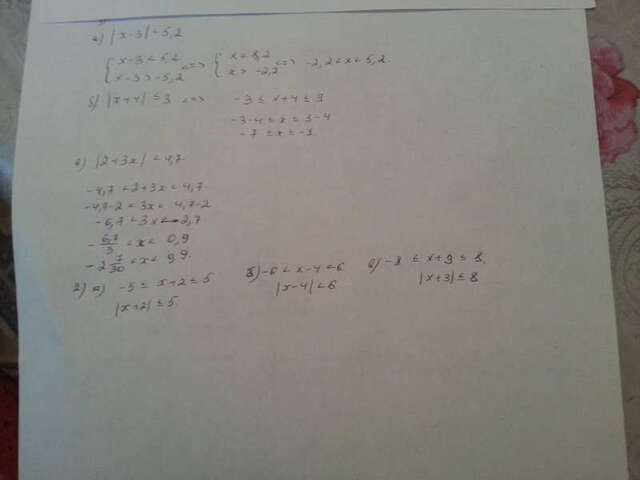 а) |x-3| < 5,2
{ x-3 < 5,2 x-3 > -5,2 <=> { x < 8,2 x > -2,2 <=> -2,2 < x < 5,2.
б) |x+4| ≤ 3 <=> -3 ≤ x+4 ≤ 3
-3-4 ≤ x ≤ 3-4
-7 ≤ x ≤ -1
в) |2+3x| < 4,7.
-4,7 < 2+3x < 4,7.
-4,7-2 < 3x < 4,7-2
-6,7 < 3x < 2,7
-6,7/3 < x < 0,9
-2 7/30 < x < 0,9.
2) а) -5 ≤ x+2 ≤ 5
|x+2| ≤ 5.
б) -6 < x-4 < 6
|x-4| < 6
в) -8 ≤ x+3 ≤ 8.
|x+3| ≤ 8